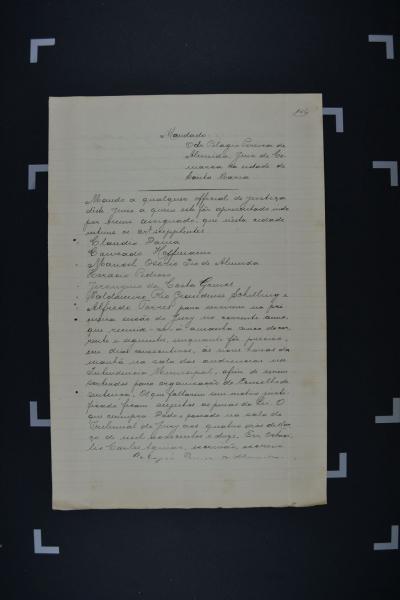 Mandado
O dr Pelagio Pereira de
Almeida, Juiz de Co
marca da cidade de
Santa Maria
Mando a qualquer official de justiça
deste Juizo a quem este fôr apresentado indo
por mim assignado, que nesta cidade
intime os supplentes
Claudio
Conrado Hoffmann
Manoel de Almida
Horacio Pedroso
da Costa Gomes
Waldomiro Rio Grandense Schilling e
Alfredo para servirem na pri
meira sessão do Jury no corrente anno,
que reunir-se-á amanhã cinco do cor
rente e seguintes, enquanto fôr preciso,
em dias consecutivos, ás nove horas da
manhã na sala das audiencias na
Intendencia Municipal, afim de serem
sorteados para organisação do Conselho de
sentença. Os que faltarem sem motivo justi
ficado ficam sujeitos as penas da Lei. O
que cumpra. Dado e passado na sala do
Tribunal do Jury aos quatro dias de Mar
ço de mil novecentos e doze. Eu,
escrivão escrevi
Pereira de Almeida